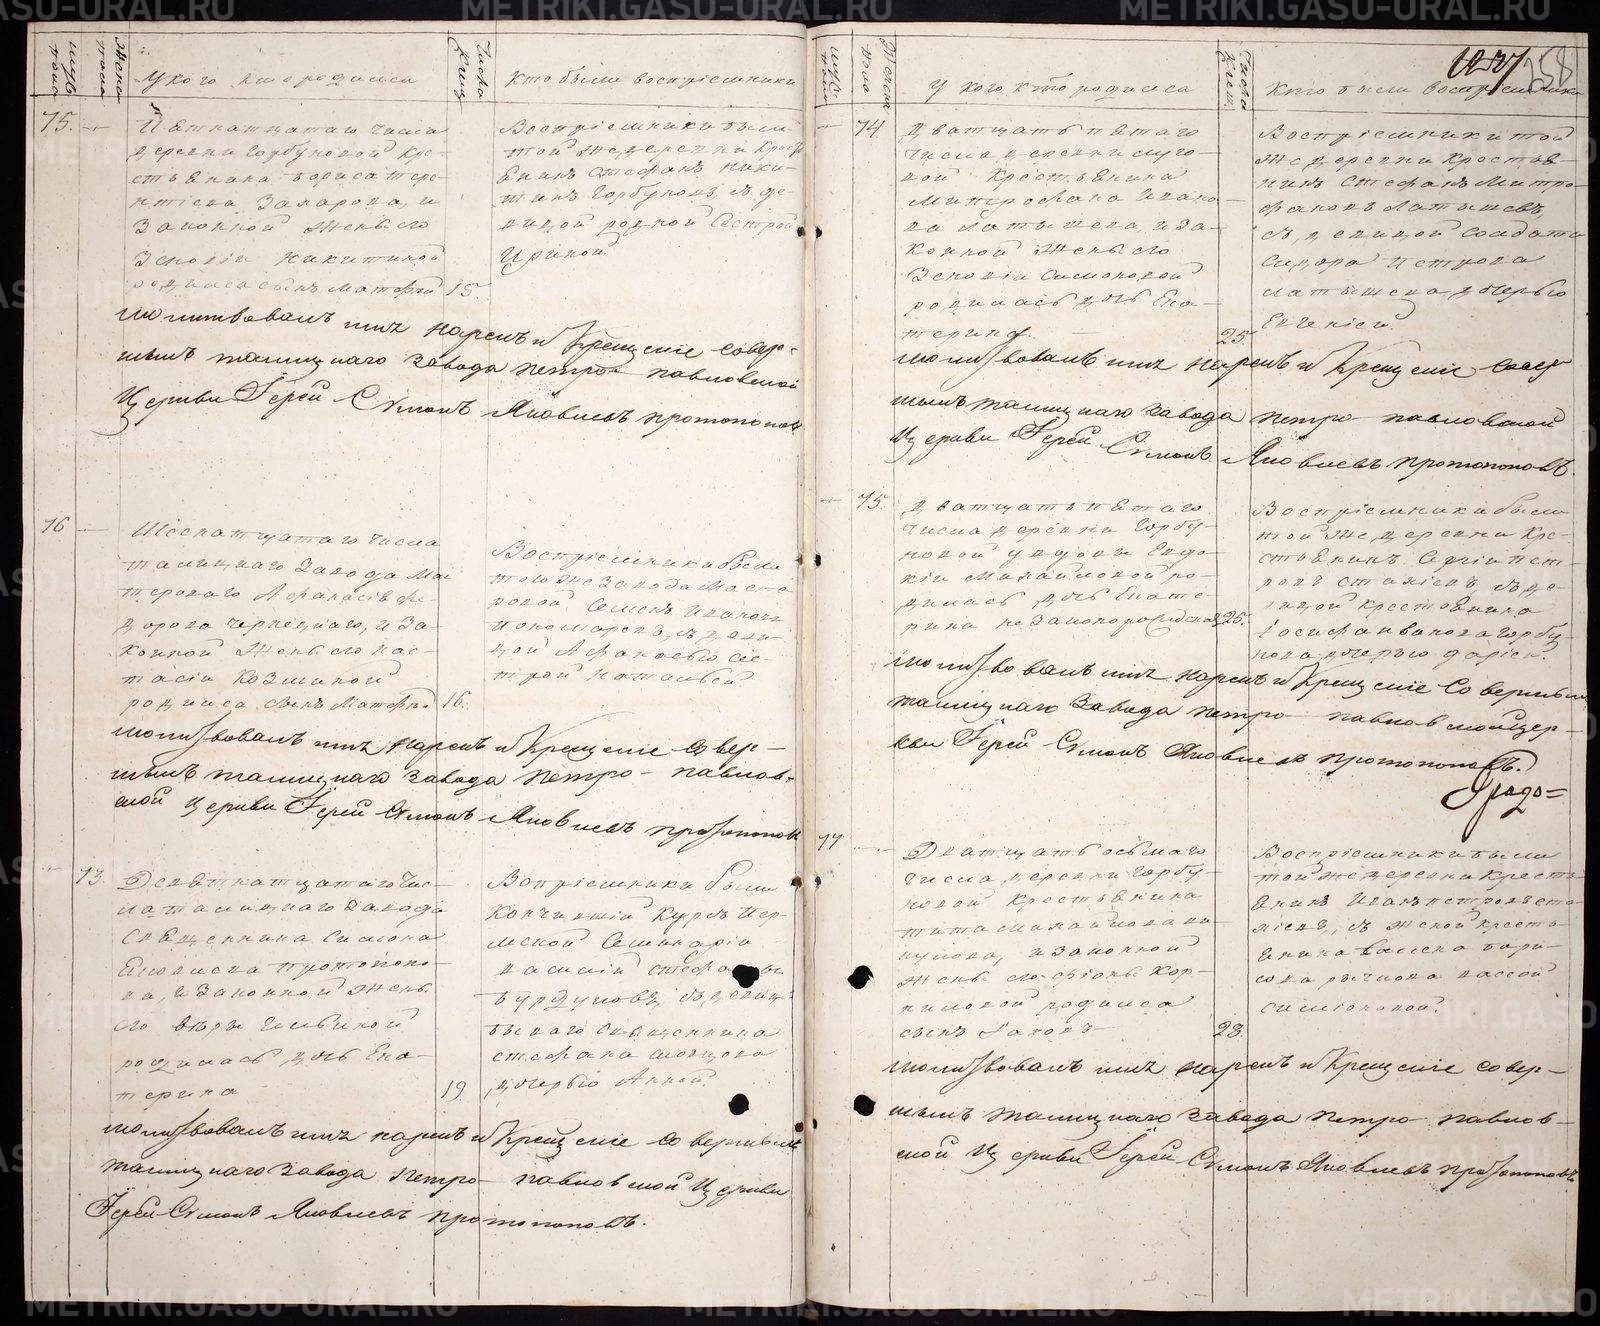 METRIKI.GASO-URAL.RU
У кого кто родился
Кто были воспріемники
75.
Пятнатцатаго числа
деревни Горбуновой кре-
стьянина Бориса Тере-
нтіева Захарова, и
Законной жены его
Зеновіи Никитиной
родился сынъ Матфей 15.
Воспріемники были
той же деревни Кресть
янинъ Стефанъ Ники-
тинъ Горбуновъ, съ де-
вицой родной сестрой
Ириной.
молитвовалъ имя нарекъ и Крещеніе совер-
шылъ талицкаго завода петро-павловской
Церкви Іерей Симонъ Яковлевъ протопоповъ
76
Шеснатцатаго числа
талицкаго Завода Мас
тероваго Афанасія Фе-
дорова и За-
конной жены его Нас-
тасіи Козминой
родился сынъ Матфей 16.
Воспріемники были
того же Завода Масте
ровой Семенъ Ивановъ
Пономаревъ, съ деви-
цой Афанасью сес-
трой Натальей
молитвовалъ имя нарекъ и Крещеніе совер-
шылъ талицкаго завода Петро-павлов-
ской Церкви Іерей Симонъ Яковлевъ протопоповъ
73.
Девятнатцатаго чис-
ла талицкаго Завода
Священника Симона
Яковлева Протопопо-
ва, и Законной жены
его Веры Глебиной
родилась дочь Ека-
терина 19
Вопріемники были
Кончившій Курсъ Пер-
мской Семинаріи
Василій Стефановъ
съ девиц:
бываго священника
Стефана Словцова
дочерью Анной.
молитвовалъ имя нарекъ и Крещеніе совершылъ
талицкаго завода Петро-павловской Церкви
Іерей Симонъ Яковлевъ протопоповъ.
У кого кто родился
Кто были воспріемники
74.
Дватцать пятаго
числа деревни Луго-
вой Крестьянина
Митрофана Ивано-
ва Латышева, и За-
конной жены его
Зеновіи Симоновой
родилась дочь Ека-
терина. 25.
Воспріемники той
же деревни Крестья-
нинъ Стефанъ Митро-
фановъ Латышевъ,
съ девицой солдата
Сидора Петрова
Латышева дочерью
Евгеніей.
молитвовалъ имя нарекъ и Крещеніе совер
шылъ талицкаго завода петро-павловской
Церкви Іерей Симонъ Яковлевъ протопоповъ.
75.
Дватцать пятаго
числа деревни Горбу-
новой у вдовы Евдо-
кіи Михайловой ро-
дилась дочь Екате-
рина незаконорожденая 25.
Воспріемники были
той же деревни Кре-
стьянинъ Сергій Пет-
ровъ Стахіевъ, съ де-
вицой крестьянина
Іосифа Иванова Горбу-
нова дочерью Даріей.
молитвовалъ имя нарекъ и Крещеніе Совершылъ
талицкаго завода петро-павловской цер-
кви Іерей Симонъ Яковлевъ протопоповъ.
77
Дватцать осьмаго
числа деревни Горбу-
новой Крестьянина
Тита Михайлова Ви-
кулова, и Законной
жены его Фіоны Кор-
ниловой родился
сынъ Іаковъ 28.
Воспріемники были
той же деревни Кресть
янинъ Иванъ Петровъ Ста-
хіевъ, съ женой кресть-
янина
Вассой
Симіоновой.
молитвовалъ имя нарекъ и Крещеніе совер-
шылъ талицкаго завода Петро-павлов-
ской Церкви Іерей Симонъ Яковлевъ протопоповъ
METRIKI.GASO-URAL.RU